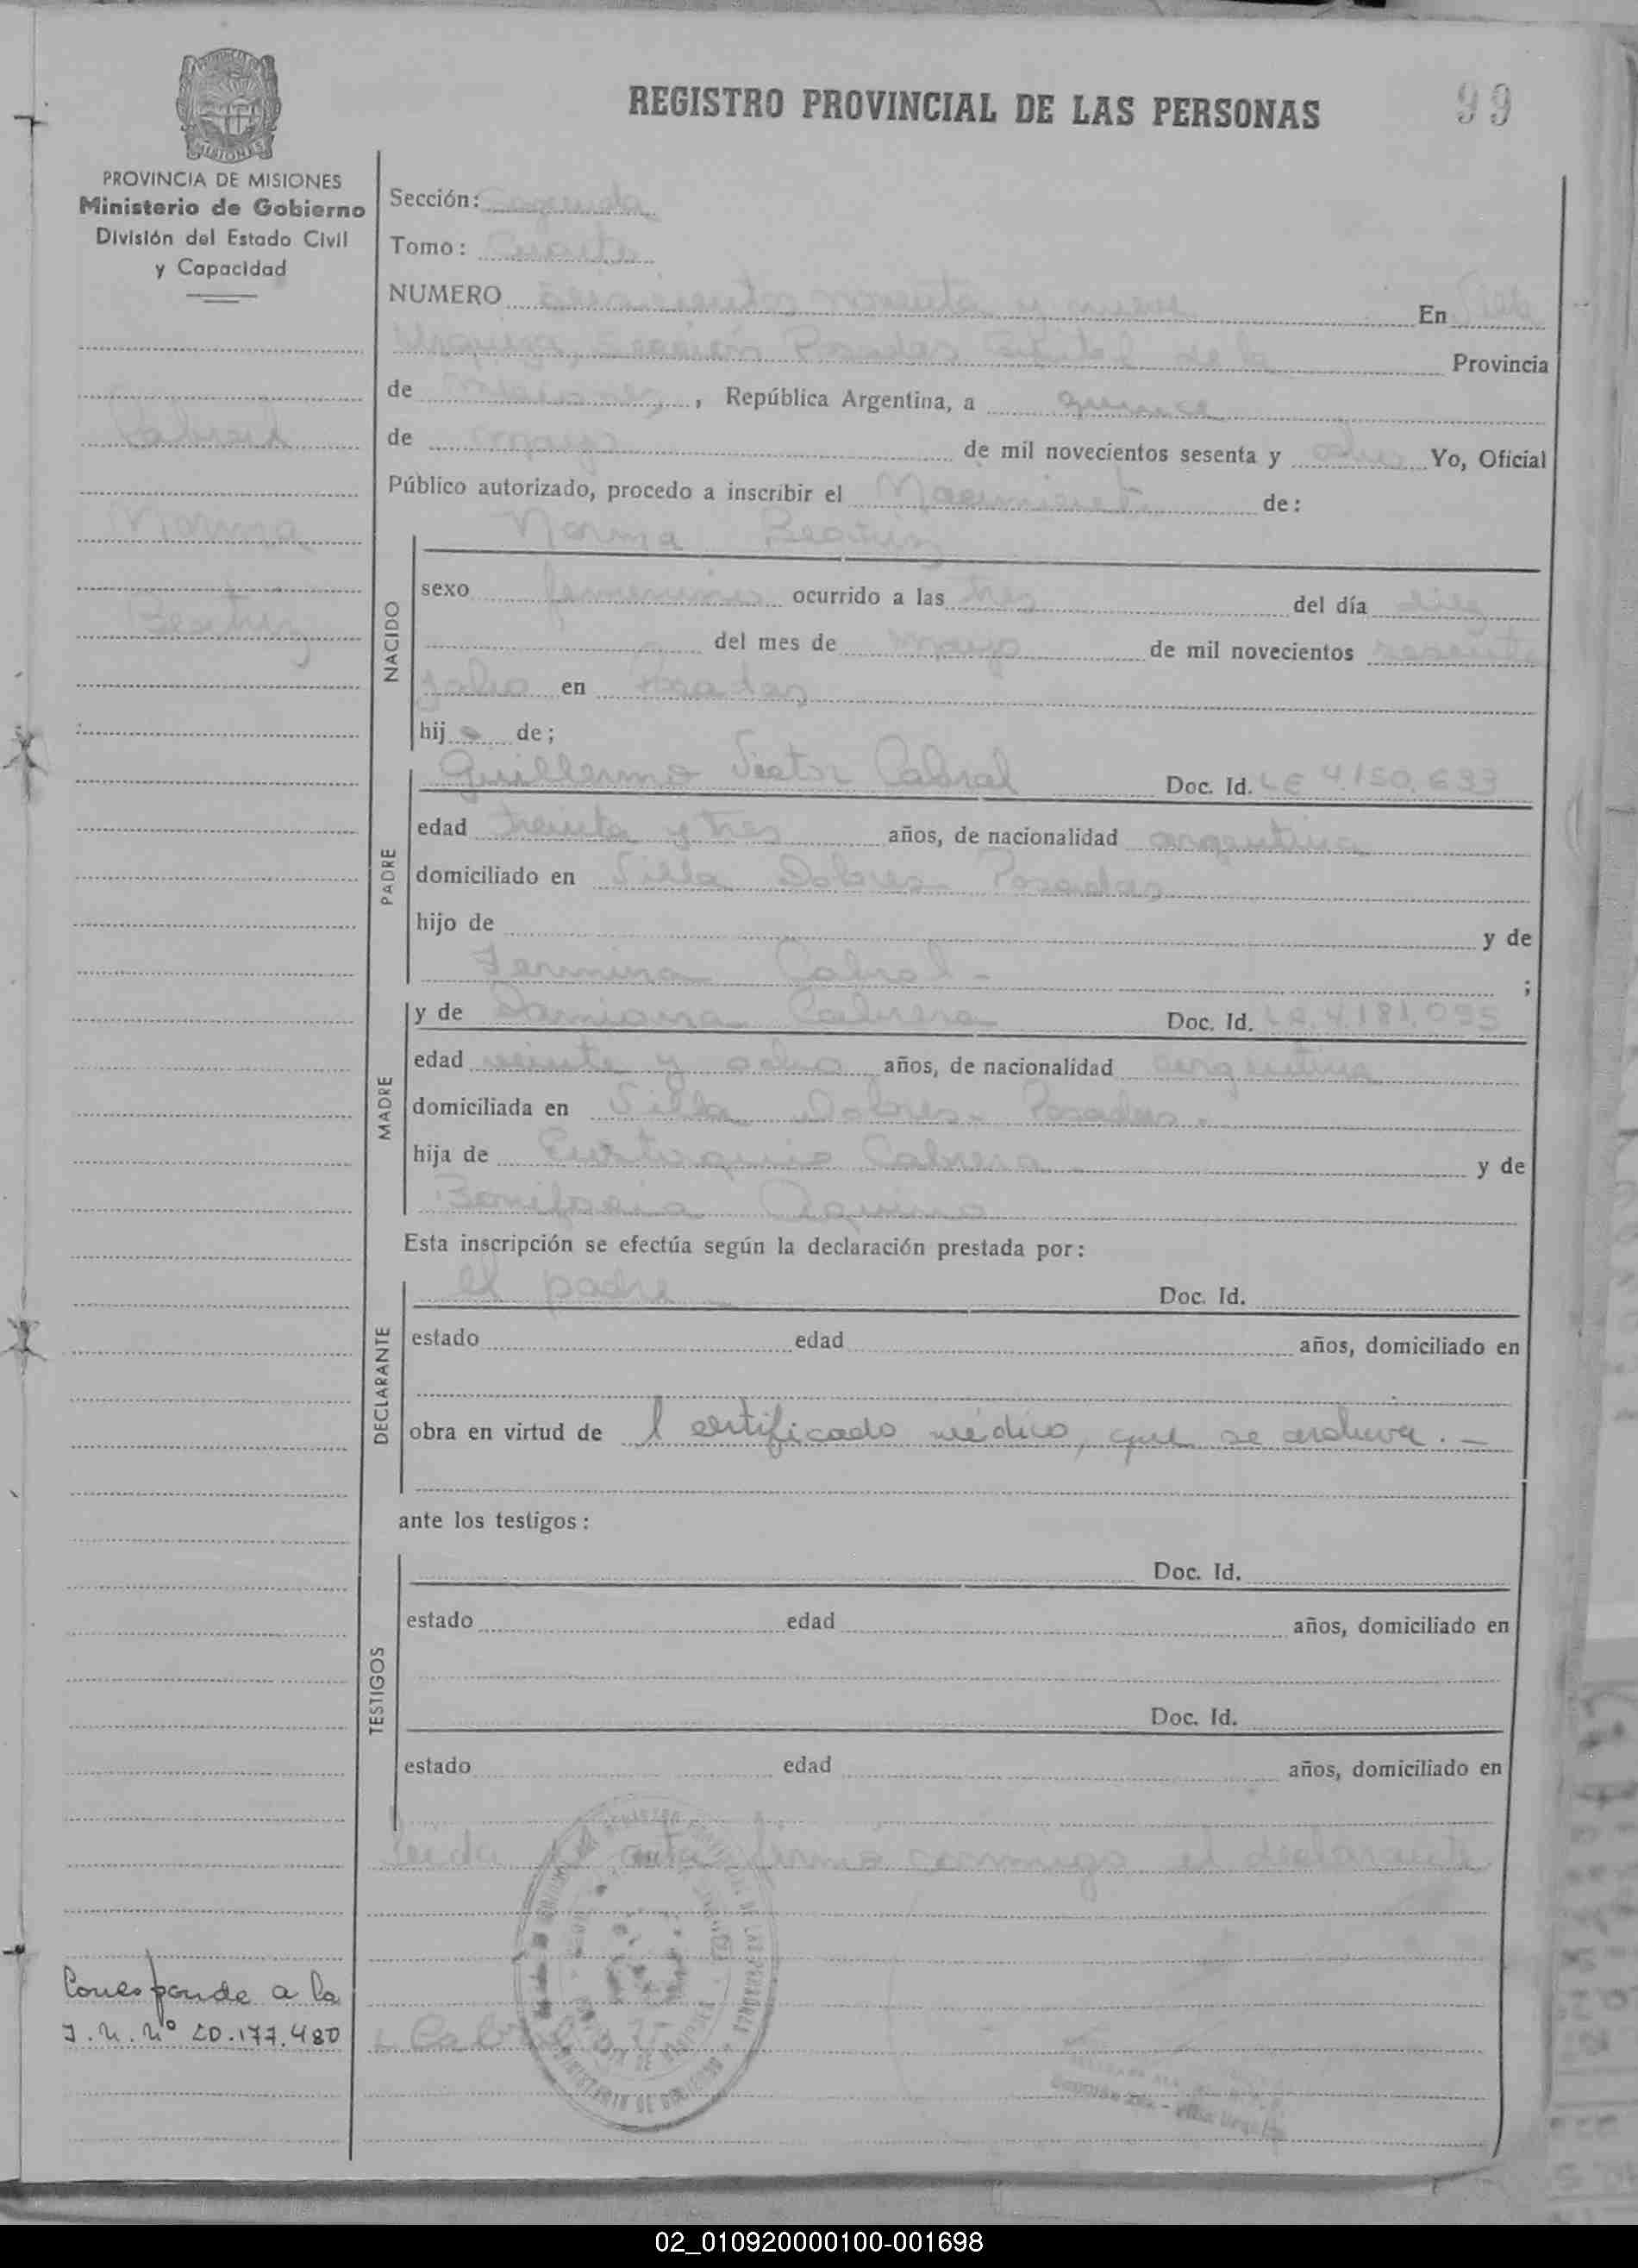 REGISTRO PROVINCIAL DE LAS PERSONAS
99
MISIONES
PROVINCIA DE MISIONES
Ministerio de Gobierno
División del Estado Civil
y Capacidad
Cabral
Norma
Beatriz
Sección: Segunda
Tomo: Cuarto
NUMERO noventa y nueve En Villa
Urquiza, Sección Posadas Capital de la Provincia
de Misiones, República Argentina, a quince
de mayo de mil novecientos sesenta y ocho Yo, Oficial
Público autorizado, procedo a inscribir el Nacimiento de:
NACIDO
Norma Beatriz
sexo femenino ocurrido a las tres del día diez
del mes de mayo de mil novecientos sesenta
y ocho en Posadas
hij a de;
PADRE
Guillermo Victor Cabral Doc. Id. LE 4.150.633
edad treinta y tres años, de nacionalidad argentina
domiciliado en Villa Dolores - Posadas
hijo de y de
Fermina Cabral - ;
MADRE
y de Damiana Cabrera Doc. Id. 4.181.095
edad veinte y ocho años, de nacionalidad argentina
domiciliada en Villa Dolores - Posadas -
hija de Eustaquio Cabrera y de
Bonifacia Aquino
Esta inscripción se efectúa según la declaración prestada por:
DECLARANTE
el padre - Doc. Id.
estado edad años, domiciliado en
obra en virtud de l certificado médico, que se archiva. -
ante los testigos:
TESTIGOS
Doc. Id.
estado edad años, domiciliado en
Doc. Id.
estado edad años, domiciliado en
Leida el acta firmó conmigo el declarante
Corresponde a la
I.N. N° 20.177.480
02_010920000100-001698